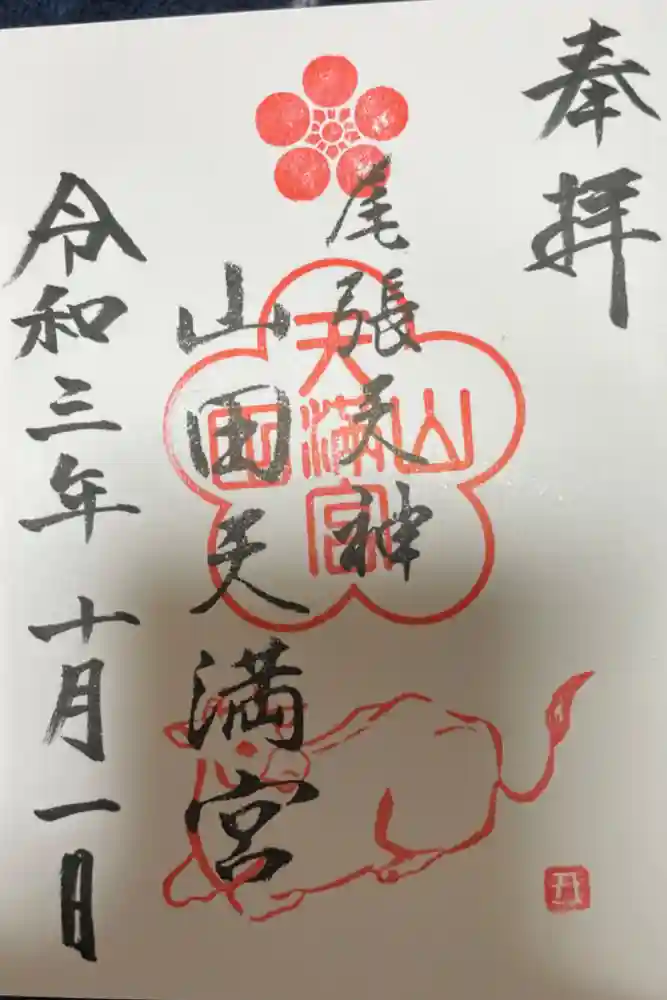 奉拝
尾張天神
山田天満宮
令和三年十月一日
山田
天満宮
丑